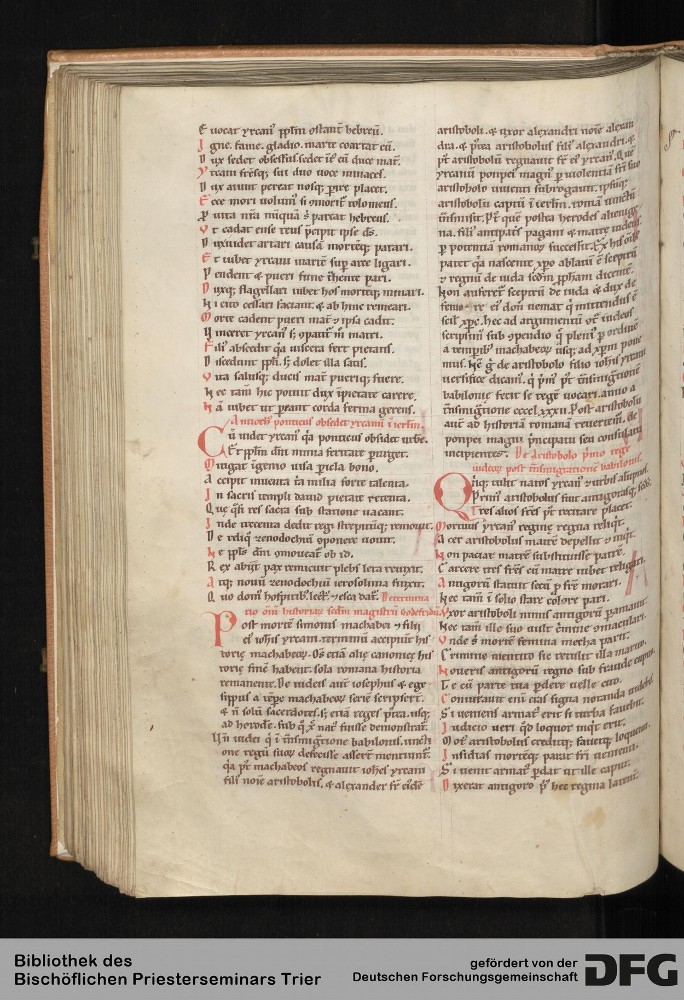 Evocat yrcani pplm ostant hebreu.
Igne. fame. gladio. marte coartat eu.
Dux sedet obsessus. sedet
Yrcani fresq; sui duo voce minaces.
Dux ait
Ecce mori volumus
Per vita
Ut cadat ense reus precipit ipse
Dux iubet artari causa morteq; parari.
Et iubet yrcani matre sup arce ligari.
Pendent & pueri fune
Duxq; flagellari iubet hos morteq; minari.
Ni cito cessari faciant. & ab hinc remeari.
Morte cadent pueri mat & ipsa cadit.
Vinceret yrcan s; opaut m matri.
Fili abscedit qa viscera fert pietatis.
Discedunt ppli. s; dolet illa satis.
Vita salusq; ducis mat pueriq; fuere.
Nec tam hic potuit dux ipietate carere.
Na iubet ut peant corda ferina gerens.
Antioch ponticus obsedit yrcanu i ierlm.
Cu videt yrcan qa ponticus obsidet urbe.
Et pplm din nimia feritate purget.
Mitigat igenio visa piela bono.
Accipit inventa ta milia forte talenta.
In sacris templi david pietate retenta.
Que qsi res sacra sub statione vacant.
Inde trecenta dedit regi strepituq; removit.
De reliq xenodochiu oponere novit.
Ne ppls din omoveat ob id.
Rex abiit pax remicuit plebs leta revixit.
Atq; novu xenodochiu ierosolima finxit.
Quo domi hospitib; lect & esca dat. Determina
tio oim historiar scdm magistru Godefridu
Post morte simonis machabei & filii
ei iohis yrcani terminu accipiunt his
torie machabeor. Os etia alie canonice his
torie fine habent. sola romana historia
remanente. De iudeis aut iosephus & ege
sippus a tepe machabeor serie scripsert.
& n solu sacerdotes. s; etia reges ptea. usq;
ad herode. sub q x nat fuisse demonstrat.
Un iudei q i tnsmigtione babilonis. uncti
one regu suor defecisse asserit mentiunt.
qa pt machabeos regnavit iohes yrcani
filii noie aristobolus. & alexander fr eide
aristoboli. & uxor alexandri noie alexan
dra. & ptea aristobolus fili alexandri. &
pt aristobolu regnavit fr ei yrcan. Que
yrcanu pompei magn p violentia fri suo
aristobolo viventi subrogavit. ipsuq;
aristobolu captu i ierlm. roma vinctu
tnsmisit. Pt que postea herodes alienige
na. fili antipatri pagani & matre iudeus.
p potentia romanor successit. Ex his oib;
patet qa nascente xpo ablatu e sceptru
& regnu de iuda scdm ppham dicente.
Non auferet sceptru de iuda & dux de
femore ei don veniat q mittendus e
scil xpc. hec ad argumentu ot iudeos
scripsim sub opendio q pleni p ordine
a temprib; machabeor usq; ad xpm pone
mus. Ne g de aristobolo filio iohis yrcani
versifice dicam. q pm pt tnsmigtione
babilonis fecit se rege vocari. anno a
tnsmigtione cccc.lxxxii. Post aristobolu
aut ad historia romana revertem. de
pompei magni pncipatu seu consulatu
incipientes. De Aristobolo pmo rege
iudeor post tnsmigratione babilonis.
Quiq; tulit natos yrcan & urbis alupnos.
Prim aristobolus fiut antigonusq; sedes.
Tres alios fres pt recitare placet.
Mortuus yrcan regine regna reliqt.
Acer aristobolus matre depellit & init.
Non patiat matre substituisse patre.
Carcere tres fres cu matre iubet religari.
Antigonu statuit secu p fre morari.
Nec tam i solio stare colore pari.
Uxor aristoboli nimis antigonu pamavit.
Nec tam ille suo vult crimine omaculari.
Unde s morte femina mecha parit.
Crimine mentito sic retulit illa marito.
Noveris antigonu regno sub fraude cupito.
Te cu parte tua pdere velle cito.
Comutavit eni cras signa notanda videbis.
Si veniens armat erit si turba favebit.
Iudicio veri qd loquor inqt erit.
Mox aristobolus credituq; favetq; loquenti.
Insidias morteq; parat fri venienti.
Si venit armat pdat ut ille caput.
Dixerat antigono p hec regina latenti.
Bibliothek des
Bischöflichen Priesterseminars Trier
gefördert von der
Deutschen Forschungsgemeinschaft
DFG